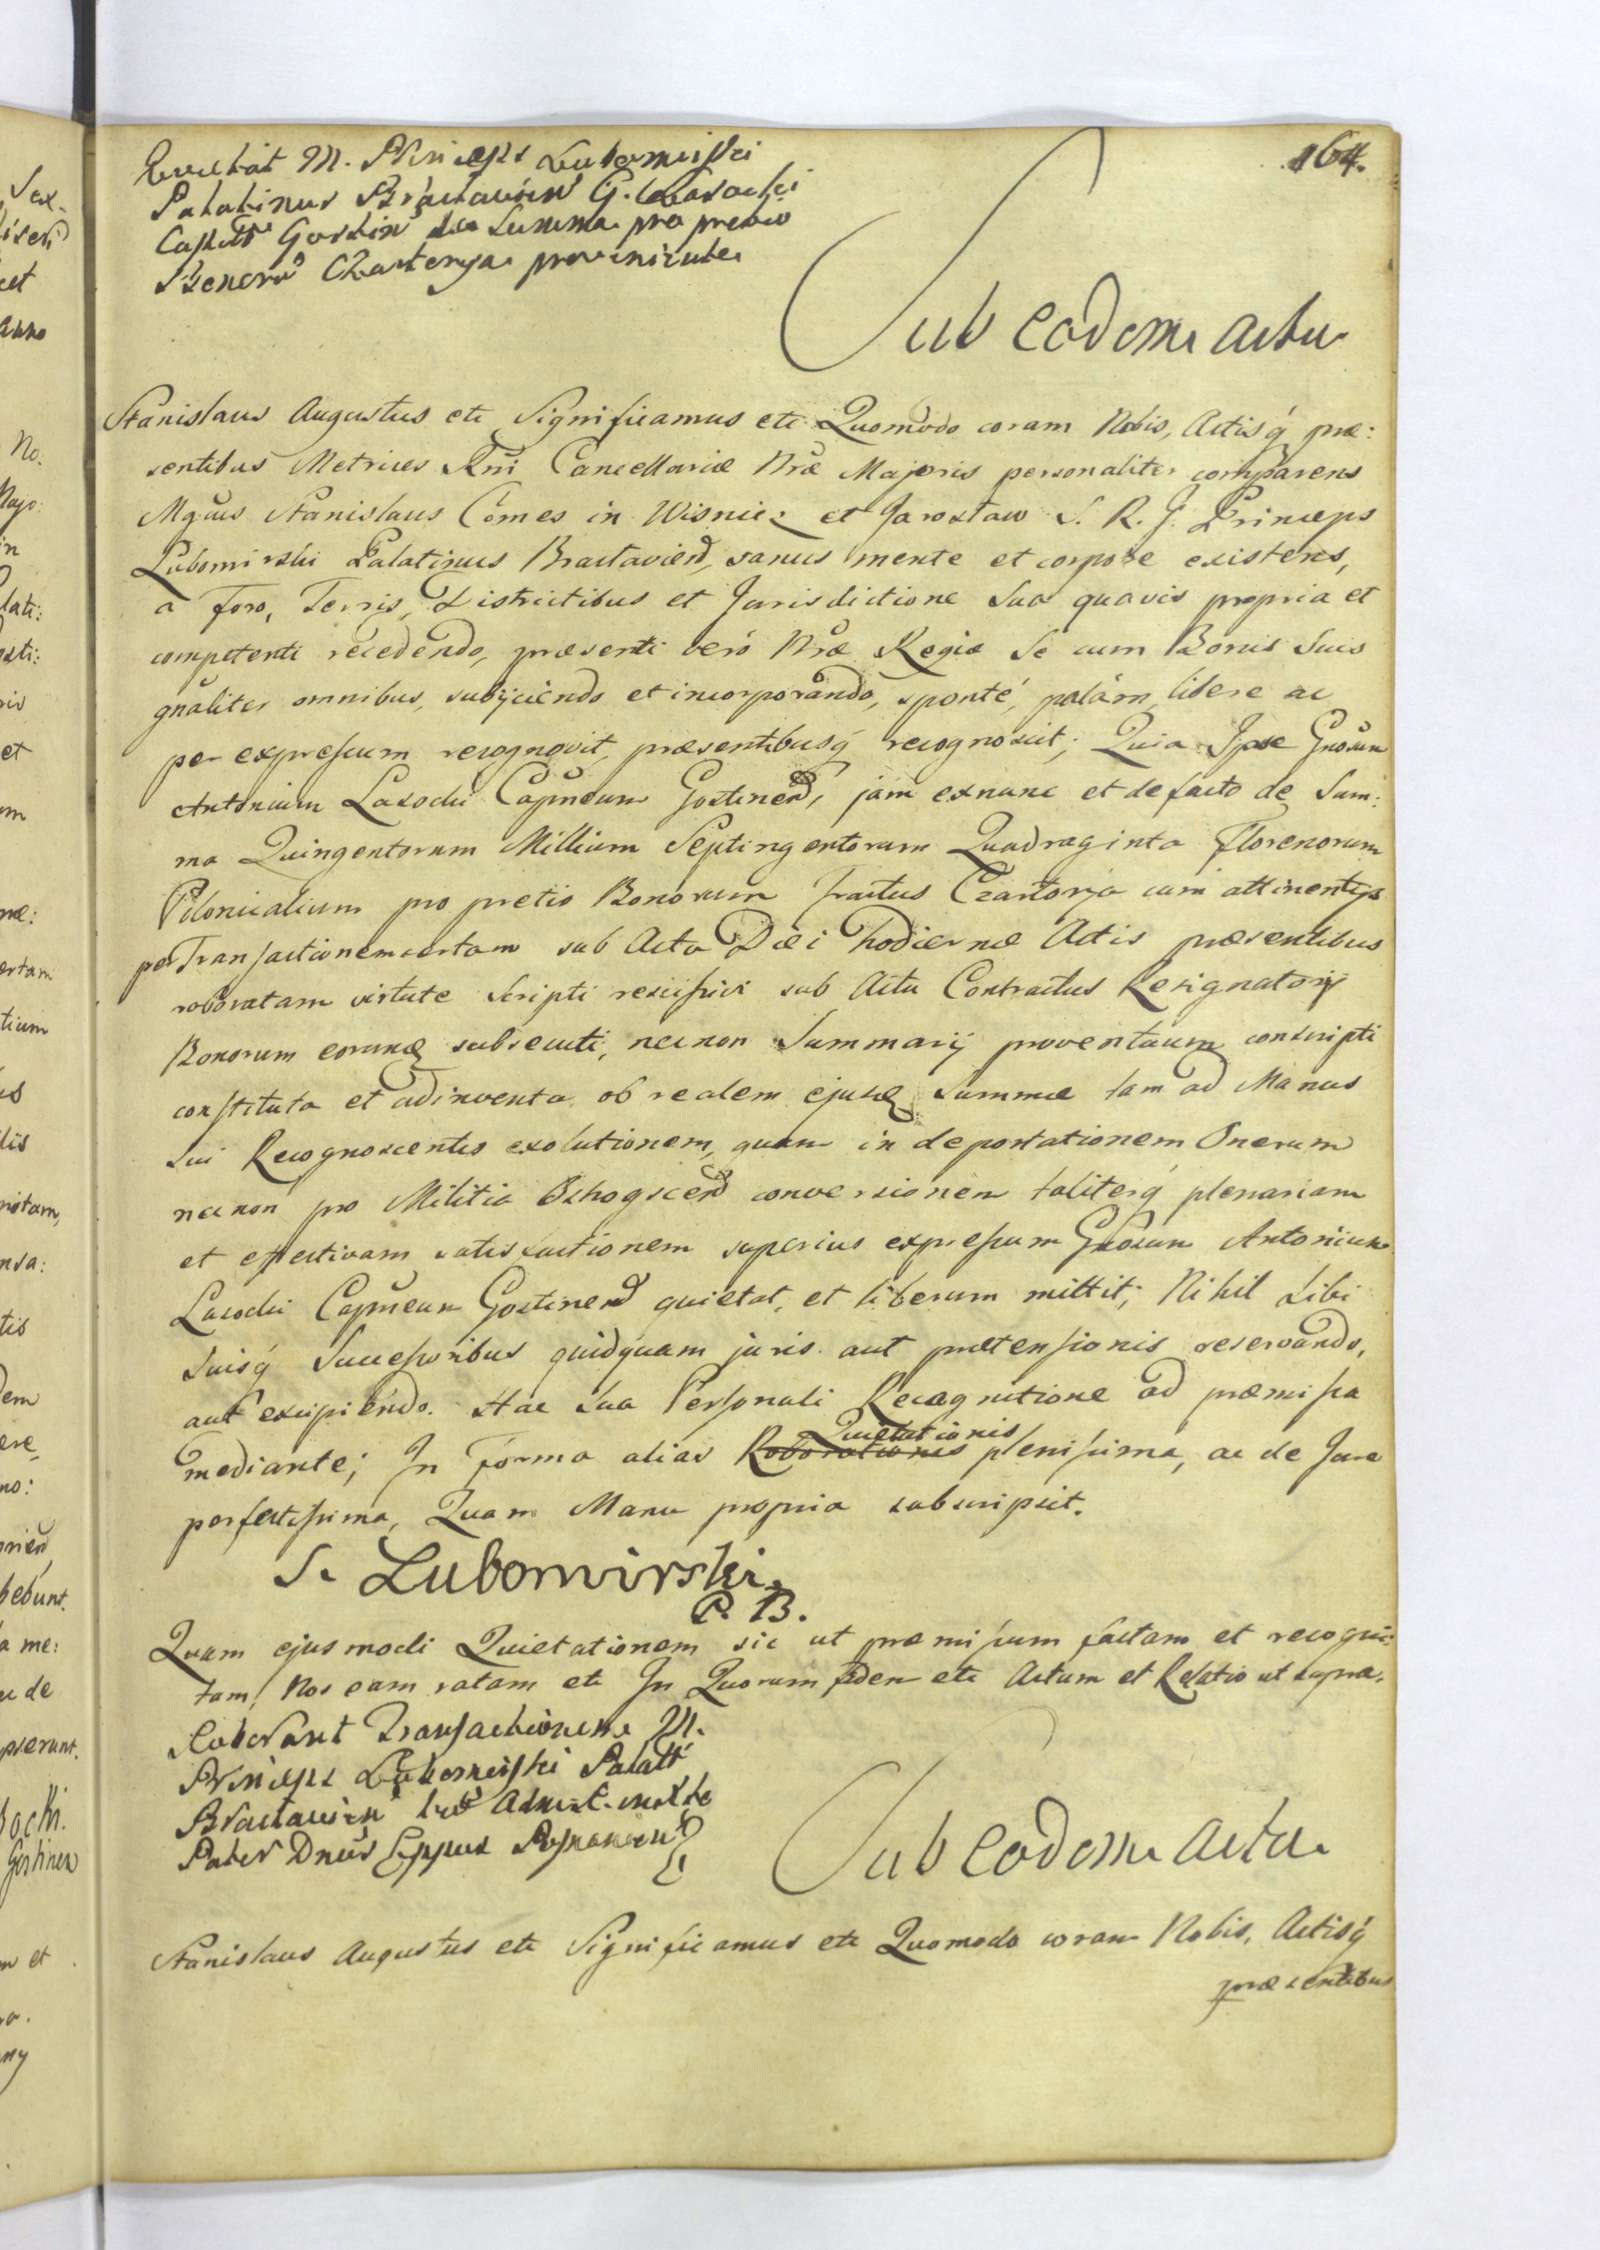 164.
Quietat M. Princeps Lubomirski
Palatinus Bractavien G. Lasocki
Capitō Gostin de Summa pro pretio
Bonorū Czartorya proveniente
Sub eodem actu
Stanislaus Augustus etc Significamus etc Quomodo coram Nobis, Actisq́ præ:
sentibus Metrices Rni Cancellariæ Nræ Majoris personaliter comparens
Mgcus Stanislaus Comes in Wisnicz et Jaroslaw S. R. J. Princeps
Lubomirski Palatinus Bractavien, sanus mente et corpore existens,
a Foro, Terris, Districtibus et Jurisdictione Sua quavis propria et
competenti recedendo, præsenti vero Nræ Regiæ Se cum Bonis Suis
gnaliter omnibus, subijciendo et incorporando, sponté, palàm, libere ac
per expressum recognovit, præsentibusq́ recognoscit; Quia Ipse Gnosum
Antonium Lasocki Capneum Gostinen, jam exnunc et defacto de Sum:
ma Quingentorum Millium Septingentorum Quadraginta Florenorum
Polonicalium pro pretio Bonorum Tractus Czartorja cum attinentijs
per Transactionem certam sub Actu Diei hodiernæ Actis præsentibus
roboratam virtute Scripti rescissivi sub Actu Contractus Resignatorij
Bonorum eorund subsecuti, necnon Summarij proventuum conscripti
constituta et adinventa ob realem ejusd Summæ tam ad Manus
sui Recognoscentis exolutionem, quam in deportationem Onerum
necnon pro Militia Ostrogscen conversionem taliterq́ plenariam
et effectivam satisfactionem superius expressum Gnosum Antonium
Lasocki Capneum Gostinen quietat, et liberum mittit; Nihil Sibi
Suisq́ Successoribus quidquam juris aut prætensionis reservando,
aut excipiendo. Hac Sua Personali Recognitione ad præmissa
Quietationis
mediante; In Forma alias Roborationis plenissima, ac de Jure
perfectissima, Quam Manu propria subscripsit.
S. Lubomirski
P. B.
Quam ejusmodi Quietationem sic ut præmissum factam et recogni:
tam, Nos eam ratam etc In Quorum fidem etc Actum et Relatio ut supra.
Roborant Transactionem M.
Princeps Lubomirski Palatt
Bractavien
Pater Dnus Eppus Posnanien
Sub eodem actu
Stanislaus Augustus etc Significamus etc Quomodo coram Nobis, Actisq́
præsentibus